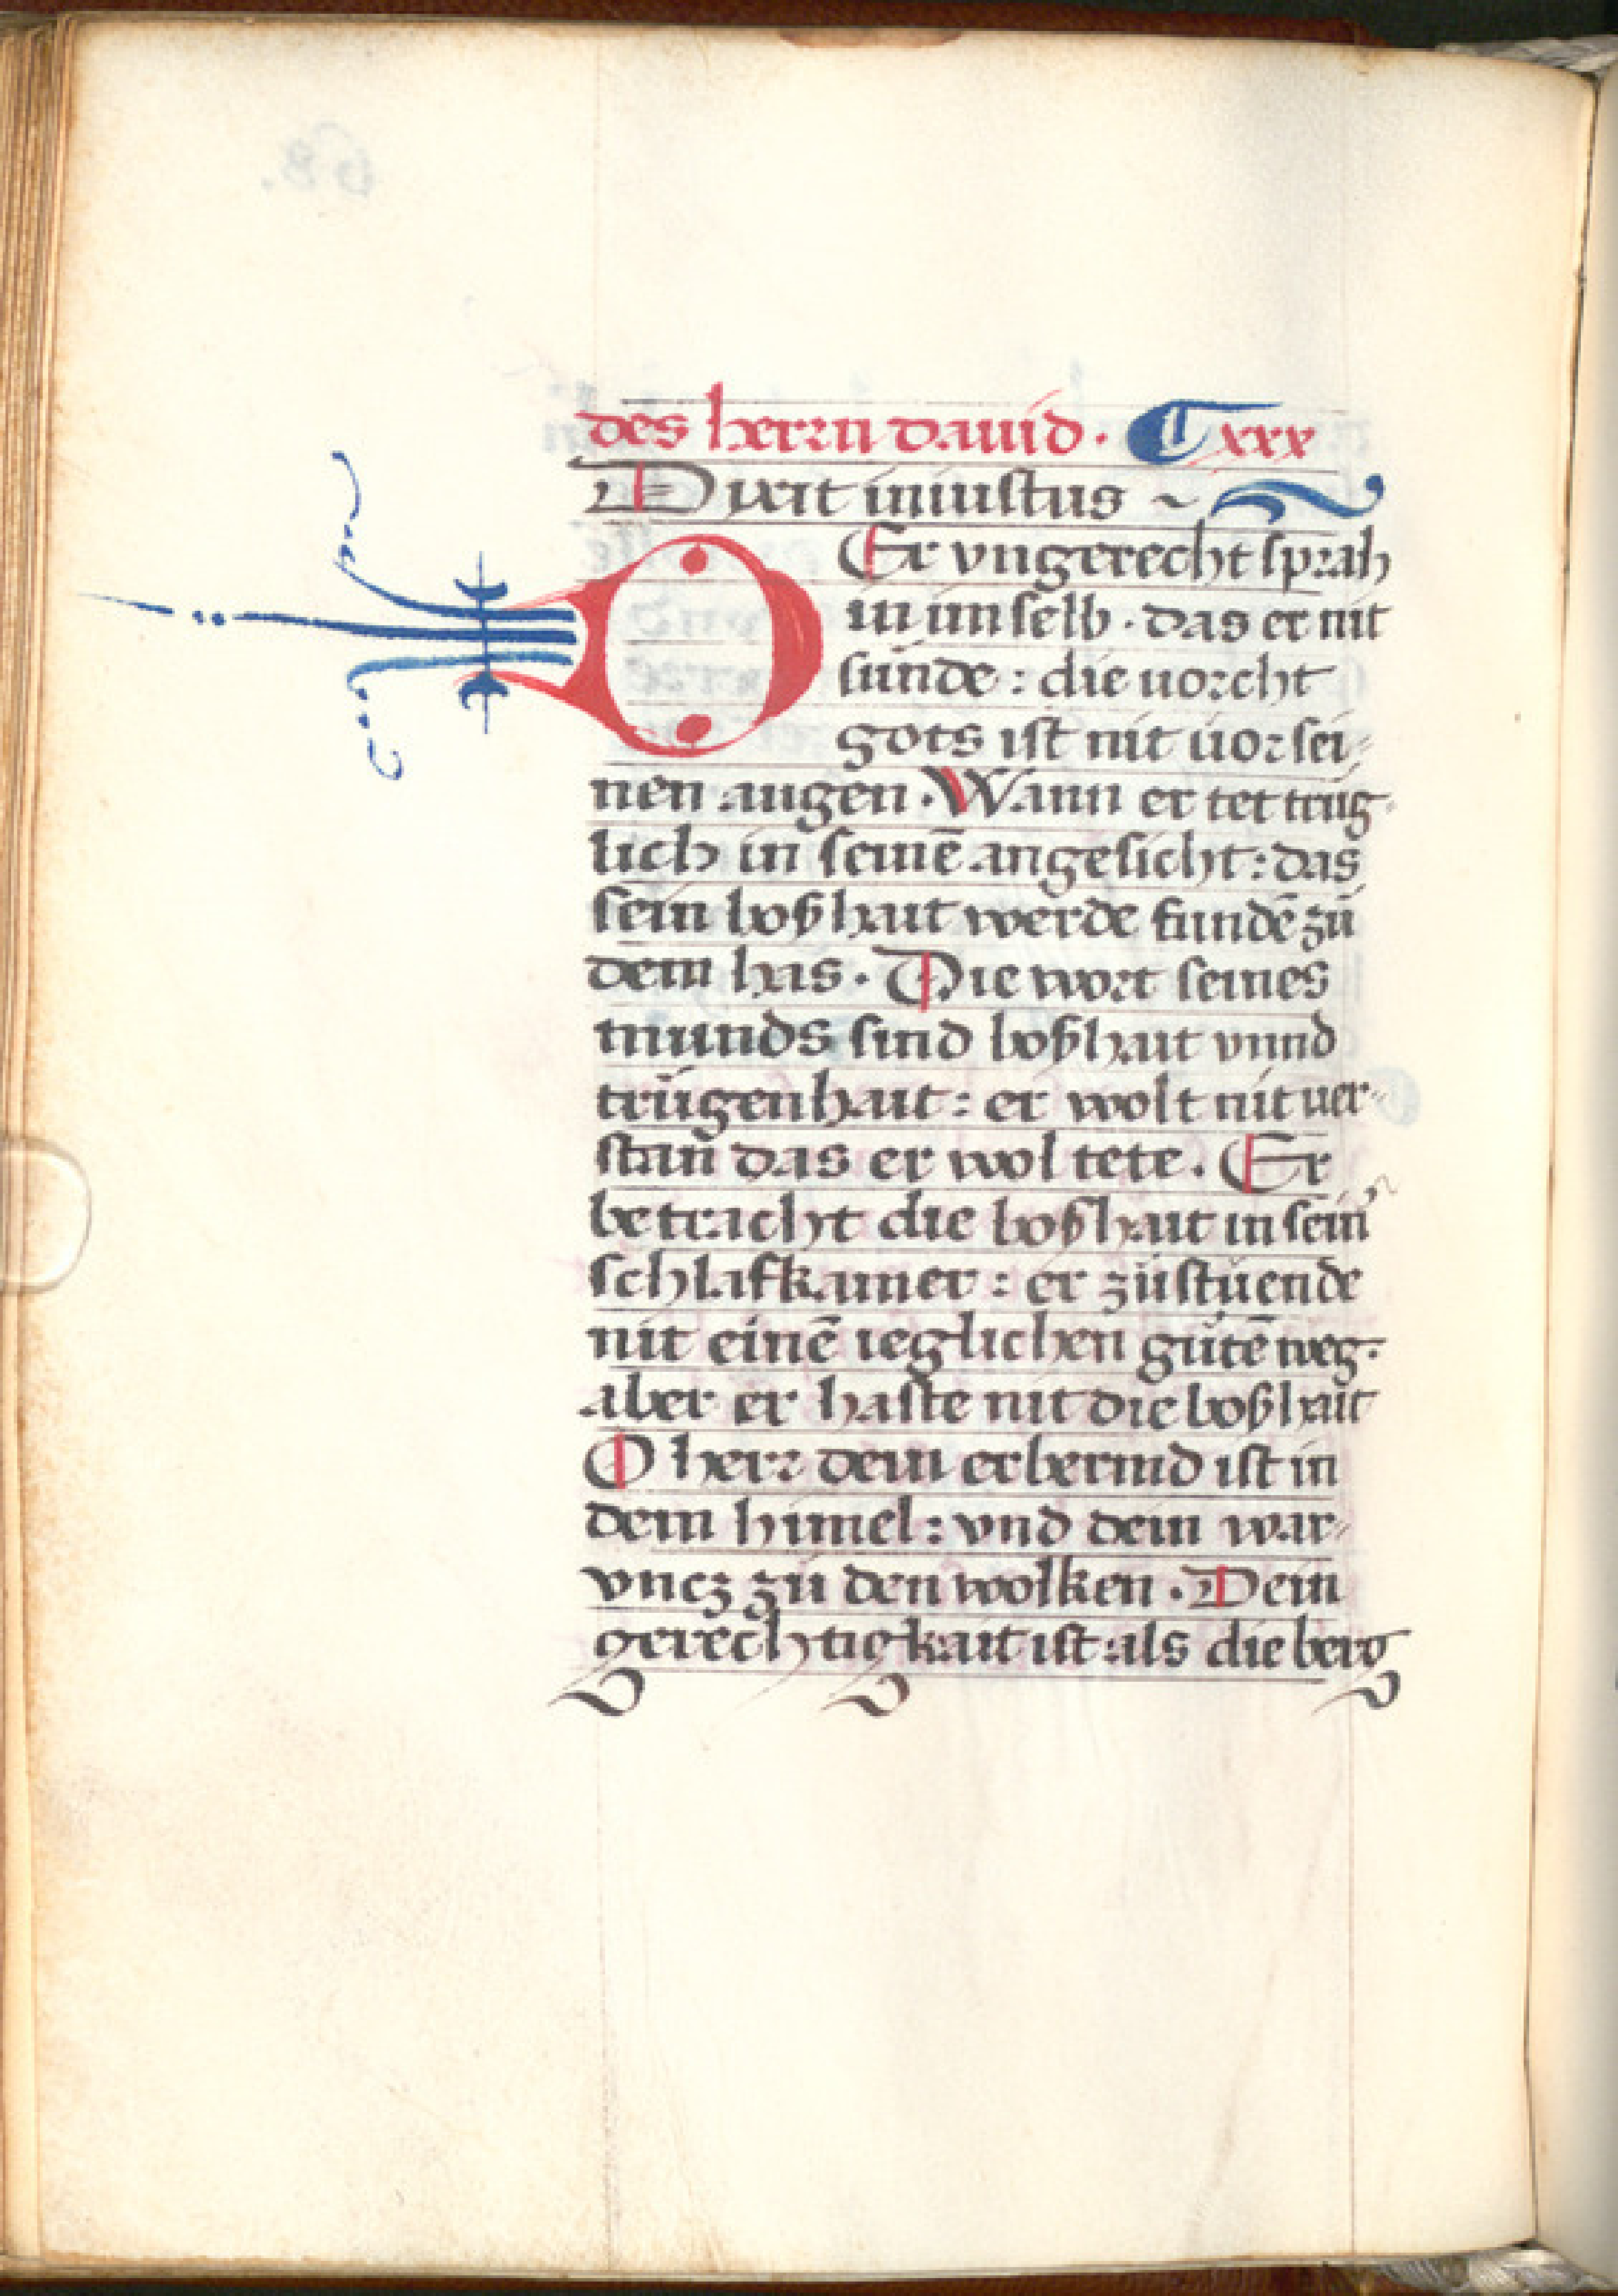 des herrn dauid · ¶ xxx
Dixit iniustus ~
DEr vngerecht sprah
in im selb · das er nit
sunde : die uorcht
gots ist nit uor sei-
nen augen · Wann er tet trug-
lich in seinē angesicht : das
sein boßhait werde fundē zu
dem has · Die wort seines
munds sind boßhait vnnd
trügenhait : er wolt nit uer-
stan das er wol tete · Er
betracht die boßhait in sein'
schlafkamer : er zustuende
nit einē ieglichen gutē weg ·
aber er haste nit die boßhait
O herr dein erbermd ist in
dem himel : vnd dein war-
vncz zu den wolken · Dein
gerechtigkait ist als die berg